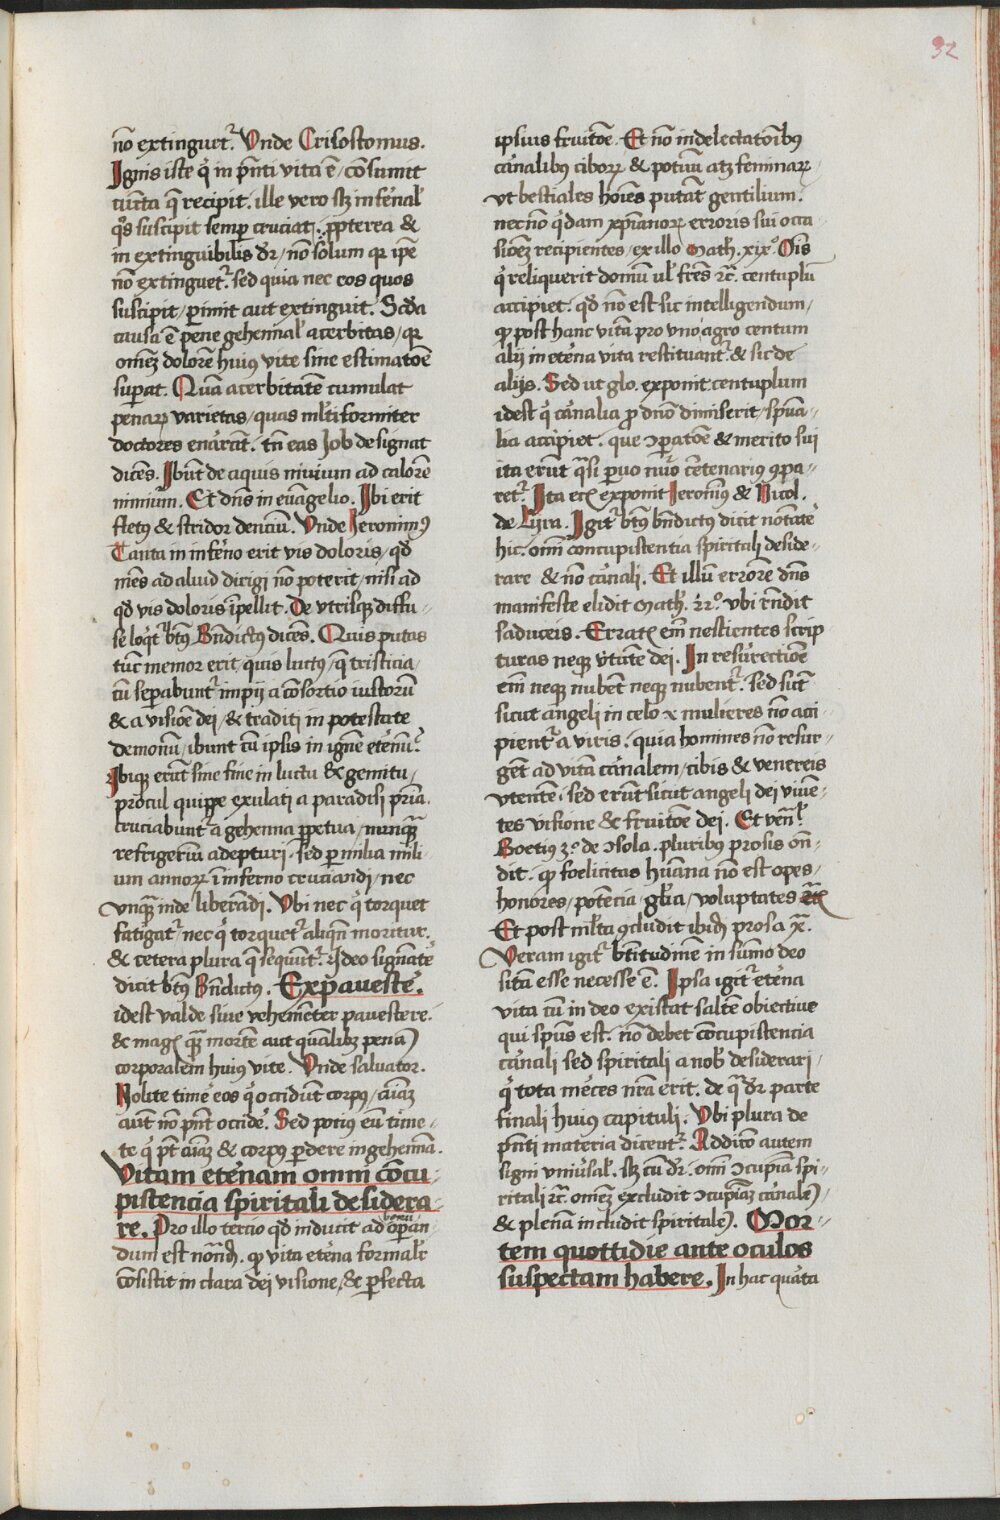 32
nō extingut᷑. Vnde Crisostomus.
Ignis iste q̇ in p̄nti vita ē / cōsumit
cūcta q̄ recipit. ille vero sꝫ infernal᷑
q̇s suscipit semꝑ cruciat / ꝓpterea &
in extinguibilis dr̄ / nō solum qꝛ ip̄e
nō extinguet᷑. sed quia nec eos quos
suscipit / ꝑimit aut extinguit. Scd̄a
causa ē pene gehennal᷑ acerbitas / qꝛ
omēꝫ dolorē huiꝰ vite sine estimatōe
suꝑat. Quā acerbitatē cumulat
penaꝝ varietas / quas ml̄tiformiter
doctores enarrāt. tn̄ eas Job designat
dicēs. Ibūt de aquis niuium ad calorē
nimium. Et dn̄s in euāgelio. Ibi erit
fletꝰ & stridor denciū. Vnde Jeronimꝰ
Tanta in inferno erit vis doloris / qd̄
mēs ad aliud dirigi nō poterit / nisi ad
qd̄ vis doloris īpellit. De vtrisqꝫ diffu-
se loqt᷑ btꝰ Bn̄dictꝰ dicēs. Quis putas
tūc memor erit / quis luctꝰ / q̄ tristicia /
cū seꝑabunt᷑ impij a cōsortio iustorū
& a visiōe dei / & traditi in potestate
demonū / ibunt cū ipsis in ignē eternū.
Ibiqꝫ erūt sine fine in luctu & gemitu /
procul quippe exulati a paradisi pr̄ia.
cruciabunt᷑ a gehenna ꝑpetua / nunqͣꝫ
refrigeriū adepturi. sed ꝑ milia mili-
um annoꝝ ī inferno cruciandi / nec
vnqͣꝫ inde liberādi. Vbi nec q̇ torquet
fatigat᷑ / nec q̇ torquet᷑ aliqn̄ moritur.
& cetera plura q̄ sequūt᷑. Ideo signāter
dicit btꝰ Bn̄dictus. Expauescere.
idest valde siue vehemēter pauescere.
& magꝭ qͣꝫ mortē aut qualibꝫ penā
corporalem huius vite. Vnde saluator.
Nolite timere eos q̇ occidūt corpꝰ / aīaꝫ
aūt nō pn̄t occide. Sed potiꝰ eū time-
te q̇ pt̄ aīaꝫ & corpꝰ ꝑdere in gehennā.
Vitam eternam omni cōcu-
pistencia spiritali desidera-
re. Pro illo tercio qd̄ inducit ad bonū oꝑan-
dum est notād. ꝙ vita eterna formalr̄
cōsistit in clara dei visione / & ꝑfecta
ipsius fruitōe. Et nō in delectatōibꝰ
carnalibꝰ ciboꝝ & potuū atqꝫ feminaꝝ
vt bestiales hoīes putāt gentilium.
necnō q̇dam xp̄ianoꝝ erroris sui occa-
sionēꝫ recipientes / ex illo Math. xix°. Oīs
q̇ reliquerit domū ul᷑ frēs ⁊c̄. centuplū
accipiet. qd̄ nō est sic intelligendum /
ꝙ post hanc vitā pro vno agro centum
alij in eterna vita restituant᷑ & sic de
alijs. Sed ut glo. exponit centuplum
idest q̇ carnalia ꝓ dn̄o dimiserit / spūa-
lia accipiet. que ɔꝑatōe & merito sui
ita erūt qͣsi ꝑuo nūo cētenarius ꝯpa-
ret᷑. Ita eciꝫ exponit Jeronimꝰ & Nicol.
de Lyra. Igit᷑ btꝰ bn̄dictꝰ dicit notāter
hic. omī concupistentia spiritali deside-
rare & nō carnali. Et illū errorē dn̄s
manifeste elidit Math. 22°. vbi rn̄dit
saduceis. Erratꝭ em̄ nestientes scrip
turas neqꝫ v̇tutē dei. In resurectiōe
em̄ neqꝫ nubent neqꝫ nubent᷑. sed sicut
sicut angeli in celo x mulieres nō acci-
pient᷑ a viris. quia homines nō resur-
gēt ad vitā carnalem / cibis & venereis
vtentē. sed erūt sicut angeli dei viuē-
tes visione & fruitōe dei. Et ven̄l᷑
Boetius 3°. de ɔsola. pluribꝰ prosis on̄-
dit. ꝙ foelicitas hūana nō est opes /
honores / potēcia / gl̄ia / voluptates
Et post ml̄ta ꝯcludit ibid. prosa x.
Veram igit᷑ btitudinē in sūmo deo
sitā esse necesse ē. Ipsa igit᷑ eterna
vita cū in deo existat saltē obiectiue
qui spūs est. nō debet cōcupistencia
carnali sed spiritali a nob̄ desiderari /
q̇ tota merces nr̄a erit. de qͣ dr̄ parte
finali huius capituli. Vbi plura de
p̄nti materia dicent᷑. Addicō autem
signi vniusal᷑. sꝫ cū dr̄. omī ɔcupīa spi-
ritali ⁊c̄. omēꝫ excludit ɔcupīaꝫ carnalē
& plenā includit spiritalē. Mor-
tem quottidie ante oculos
suspectam habere. In hac quarta